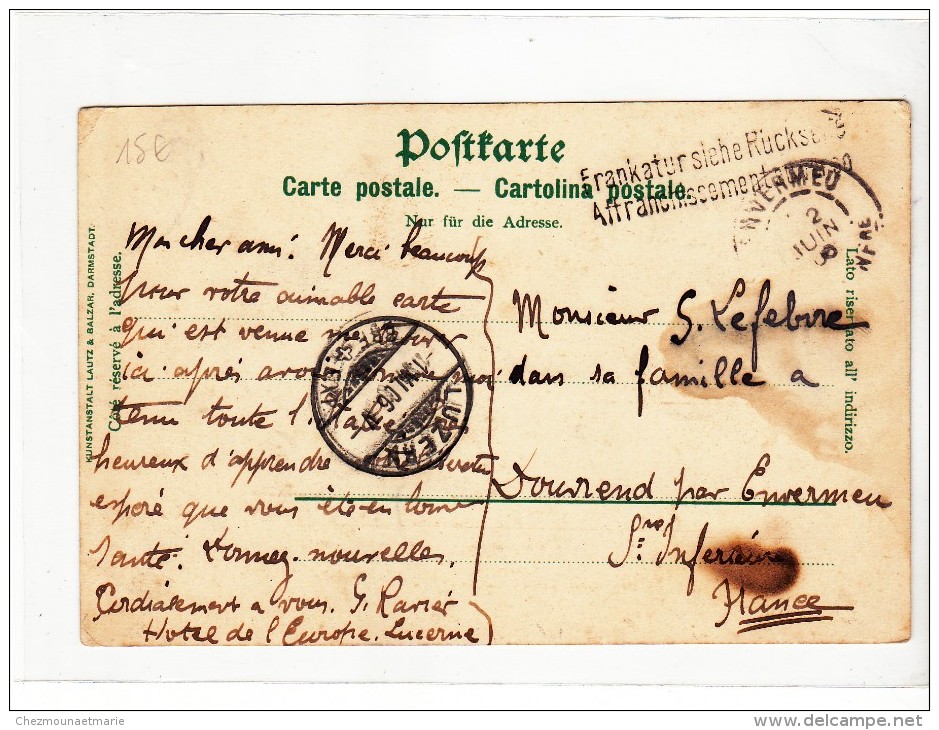 15€
Postkarte
Carte postale. — Cartolina postale.
Nur für die Adresse.
Frankatur siehe Rückseite
Affranchissement
ENVERMEU
2
JUIN
INFRE
KUNSTANSTALT LAUTZ & BALZAR, DARMSTADT.
Côté réservé à l'adresse.
Lato riservato all' indirizzo.
Mon cher ami. Merci beaucoup
pour votre aimable carte
qui est venue
ici après
tenu toute
heureux d'apprendre
espéré que vous êtes en bonne
santé. Donnez nouvelles.
Cordialement a vous. G. Ravier
Hotel de l'Europe. Lucerne
LUZERN
BRIEFEXP.
Monsieur G. Lefebvre
dans sa famille a
Douvrend par Envermeu
Sne Inferieure
France
Chezmounaetmarie
www.delcampe.net